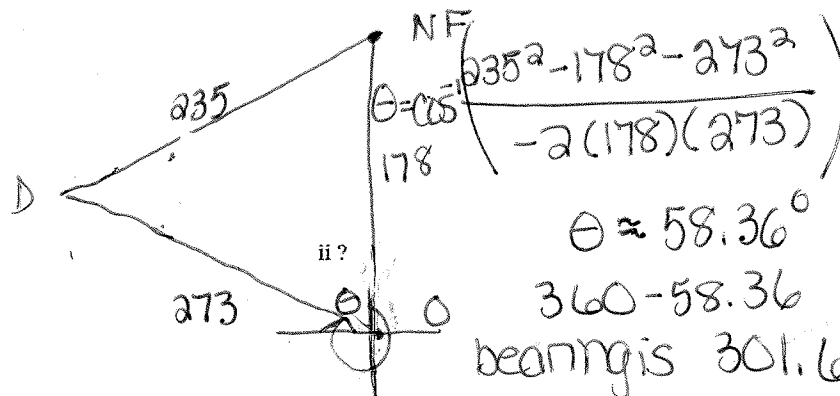 NF
235
θ = cos⁻¹(235² - 178² - 273² / -2(178)(273))
178
D
θ ≈ 58.36°
ii ?
273
θ
O
360 - 58.36
bearing is 301.6